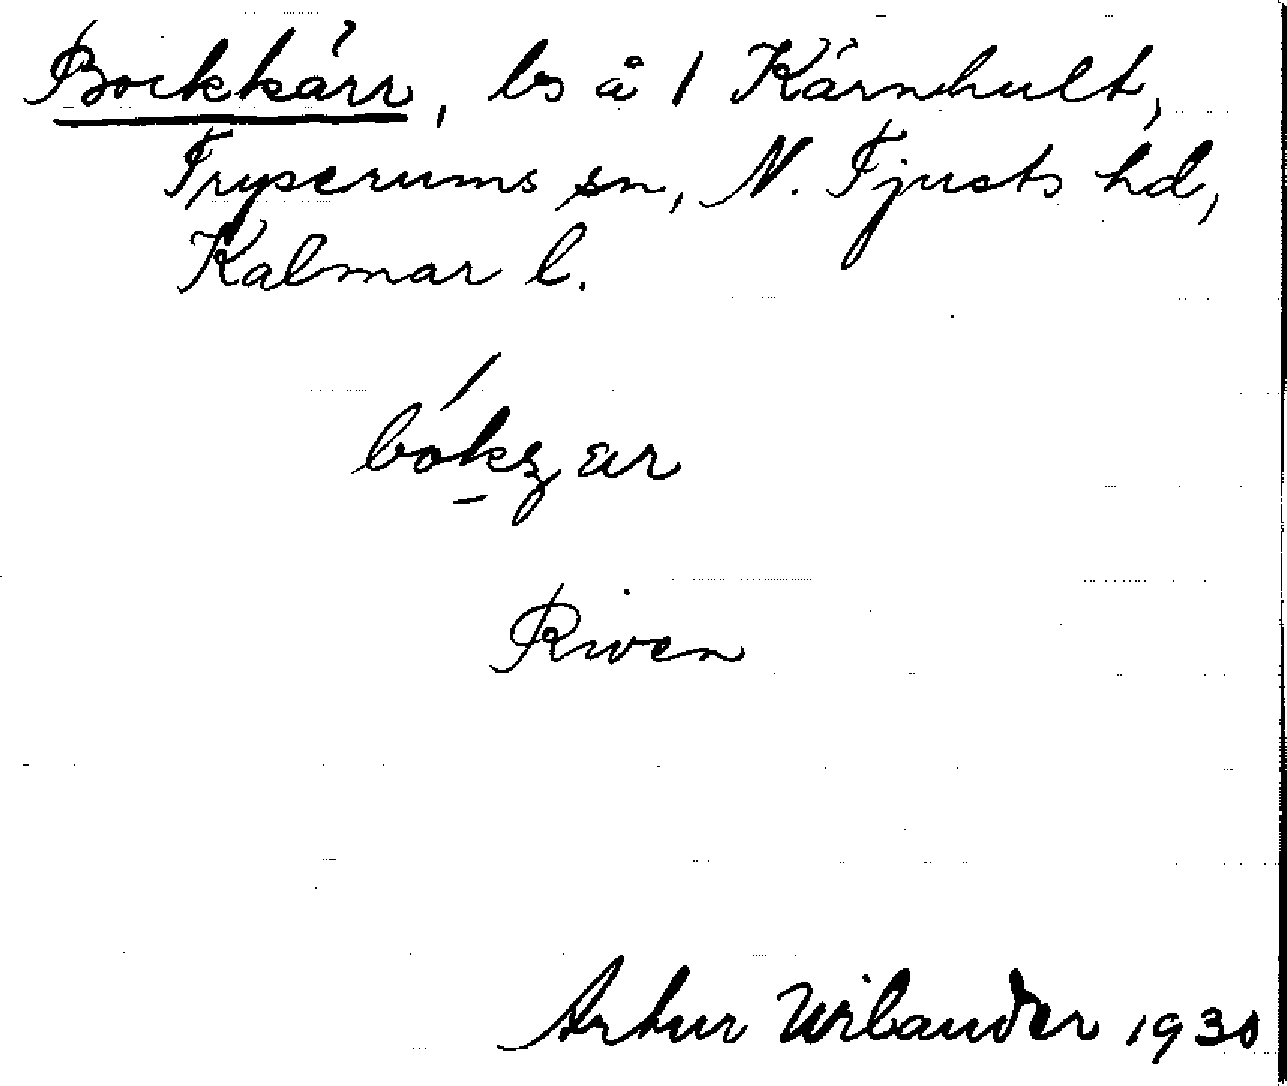 Bockkärr, ls å 1 Kärnhult,
Tryserums sn, N. Tjusts hd,
Kalmar l.
Riven
Artur Wilander 1930